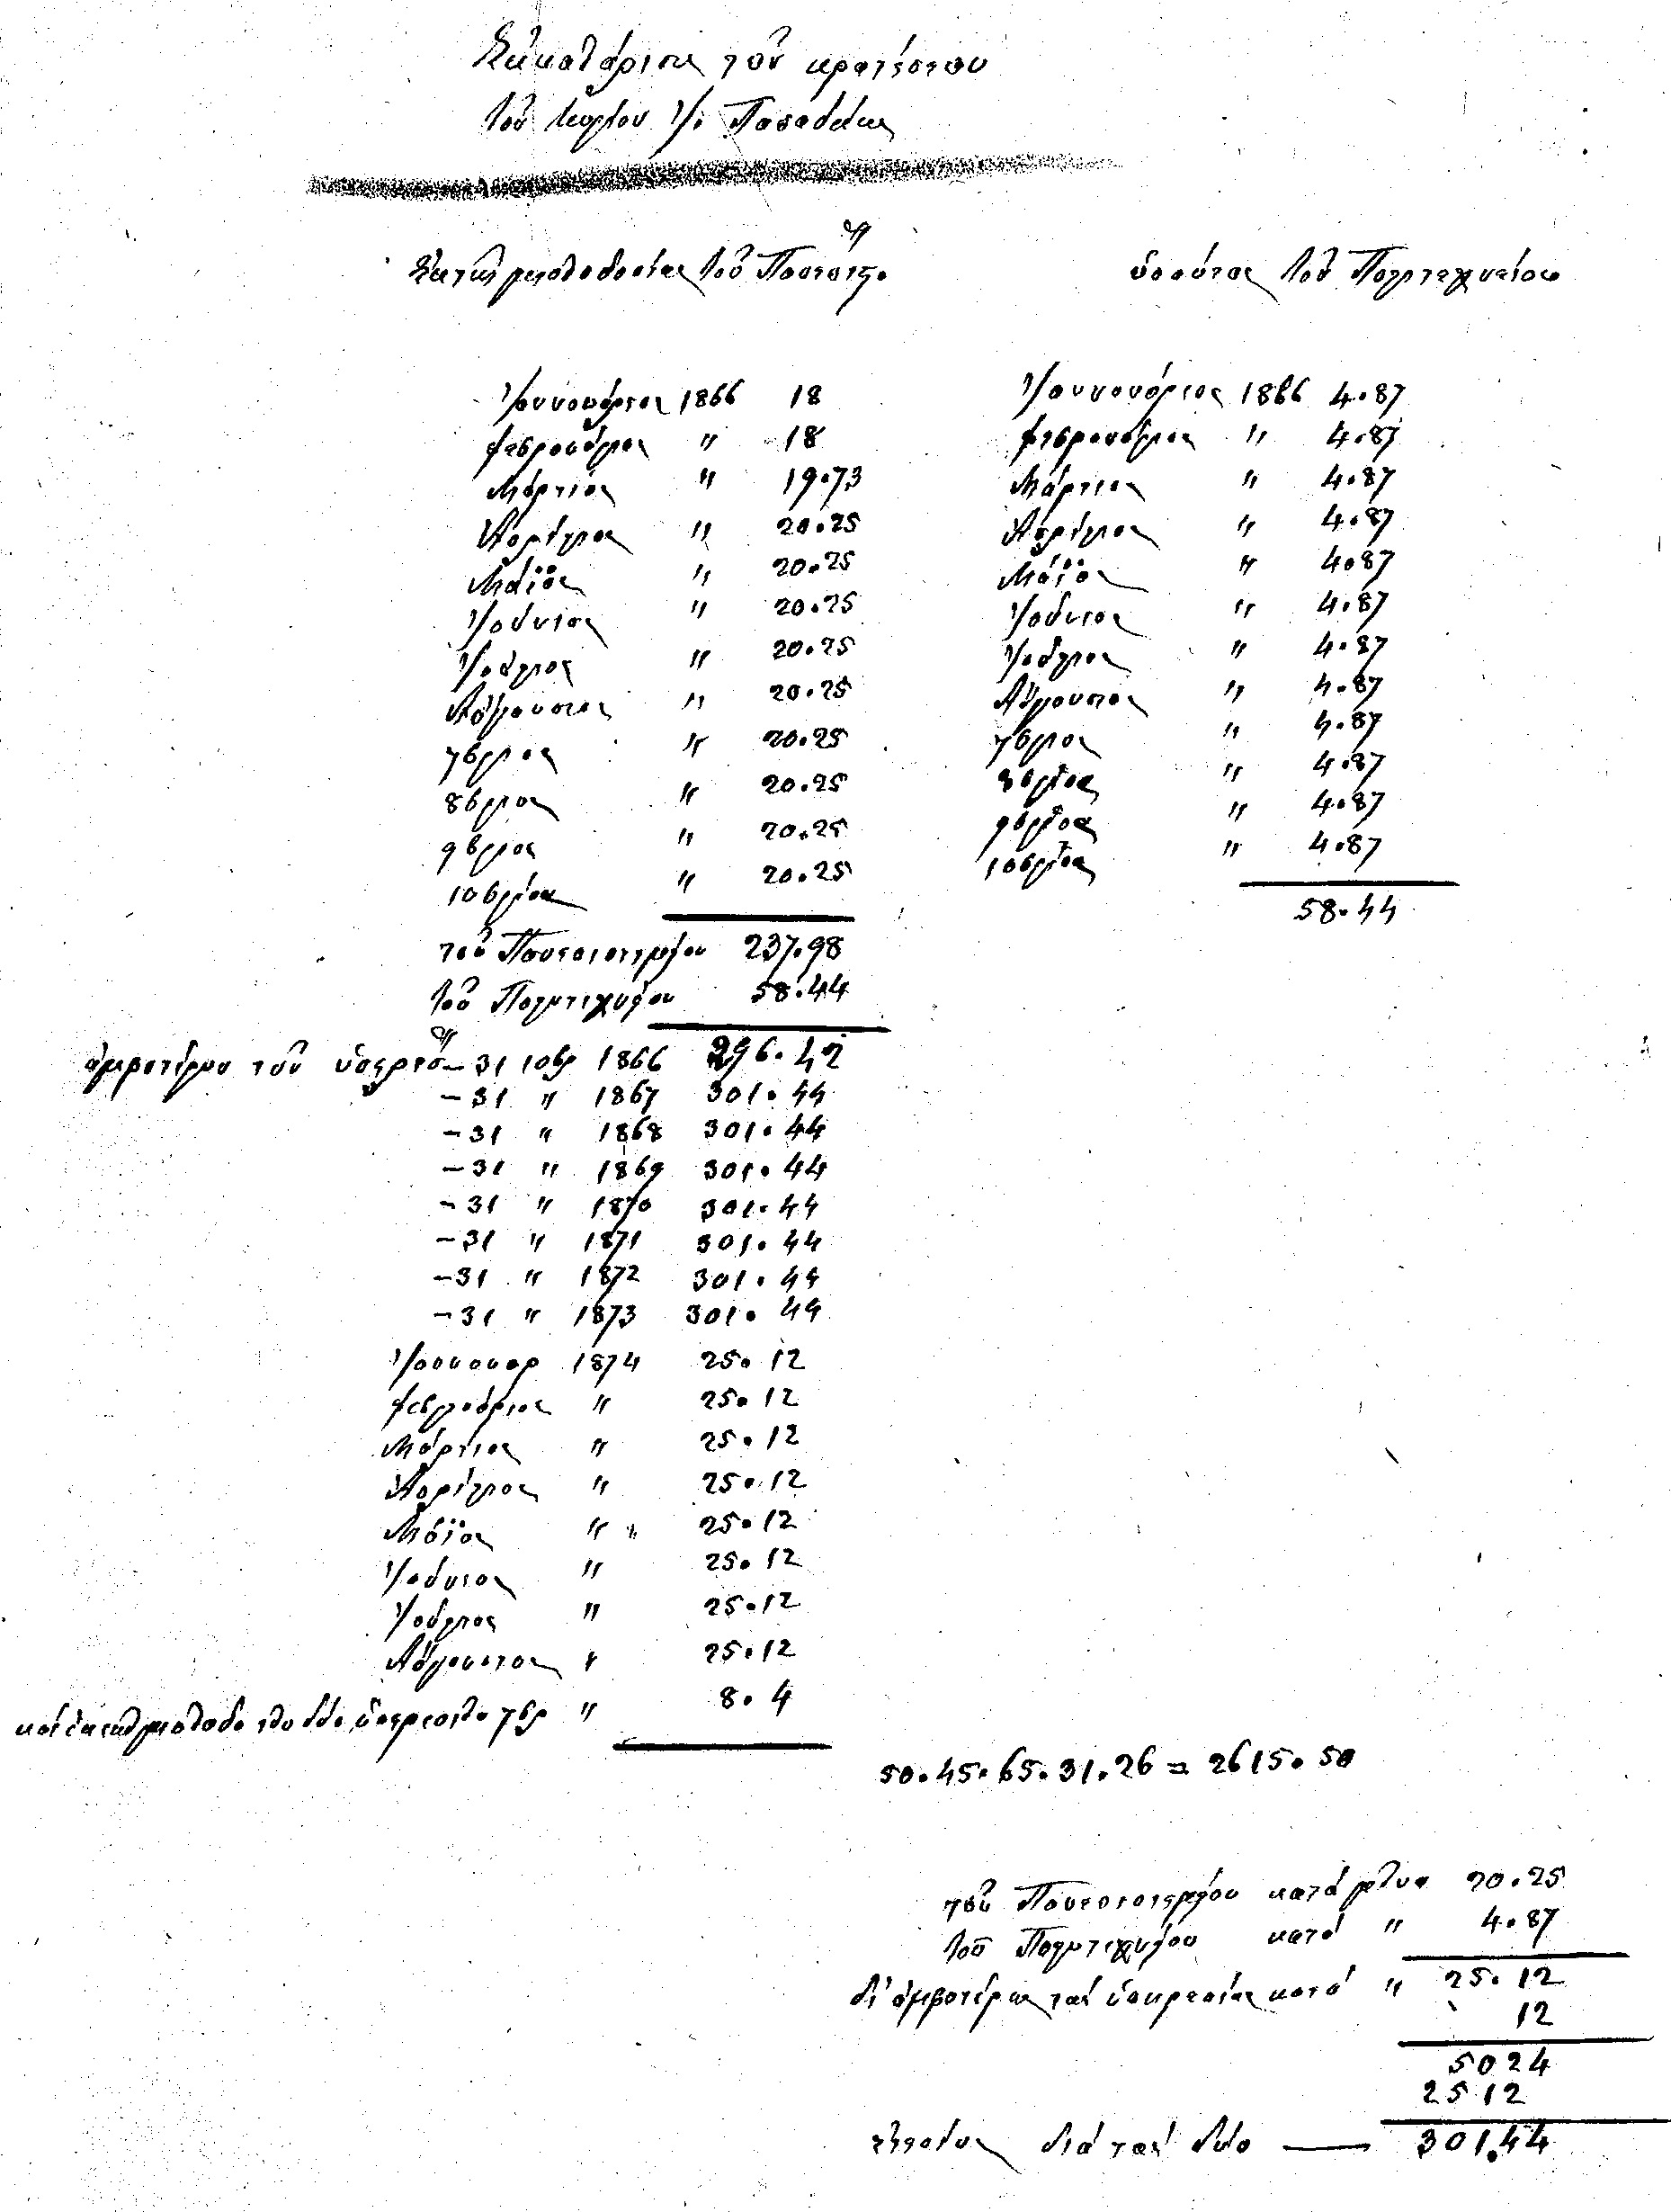 τοῦ κρατήσεων
τοῦ Κυρίου
μισθοδοσίας τοῦ Πανεπιστη.
τοῦ Πολυτεχνείου
Ἰαννουάριος 1866 18
Φεβρουάριος " 18
Μάρτιος " 19.73
Ἀπρίλιος " 20.25
Μάϊος " 20.25
Ἰούνιος " 20.25
Ἰούλιος " 20.25
Αὔγουστος " 20.25
7βριος " 20.25
8βριος " 20.25
9βριος " 20.25
10βριος " 20.25
τοῦ Πανεπιστημίου 237.98
τοῦ Πολυτεχνίου 58.44
Ἰαννουάριος 1866 4.87
Φεβρουάριος " 4.87
Μάρτιος " 4.87
Ἀπρίλιος " 4.87
Μάϊος " 4.87
Ἰούνιος " 4.87
Ἰούλιος " 4.87
Αὔγουστος " 4.87
7βριος " 4.87
8βριος " 4.87
9βριος " 4.87
10βριος " 4.87
58.44
ἀμφοτέρων τῶν – 31 10βρ 1866 296.42
– 31 " 1867 301.44
– 31 " 1868 301.44
– 31 " 1869 301.44
– 31 " 1870 301.44
– 31 " 1871 301.44
– 31 " 1872 301.44
– 31 " 1873 301.44
Ἰαννουαρ 1874 25.12
Φεβρουάριος " 25.12
Μάρτιος " 25.12
Ἀπρίλιος " 25.12
Μάϊος " 25.12
Ἰούνιος " 25.12
Ἰούλιος " 25.12
Αὔγουστος " 25.12
7βρ " 8.4
50.45.65.31.26 = 2615.50
τοῦ Πανεπιστημίου κατὰ μῆνα 20.25
τοῦ Πολυτεχνίου κατὰ " 4.87
δι' ἀμφοτέρας τὰς ὑπηρεσίας κατὰ " 25.12
12
5024
2512
ἐτησίως διὰ τὰς δύο — 301.44